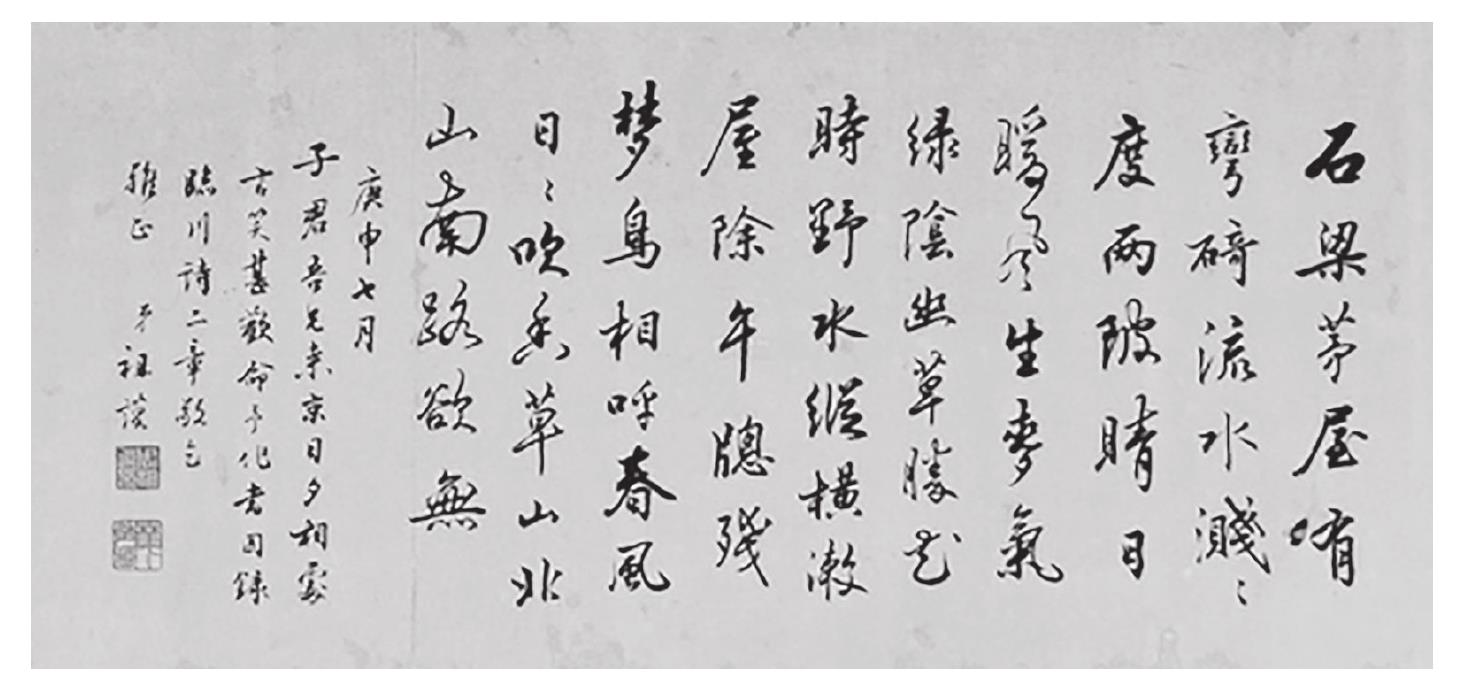 石梁茅屋有
彎碕流水濺〻
度兩陂晴日
暖風生麥氣
緑陰幽草勝花
時野水縱橫漱
屋除午牕殘
梦鳥相呼春風
日〻吹香草山北
山南路欲無
庚申七月
子君吾兄來京日夕相處
言笑甚歡命予作書因錄
臨川詩二章敬乞
雅正 弟祖謨